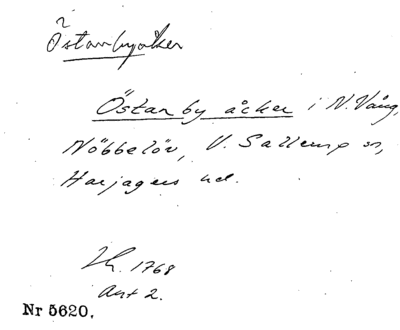 Östanbyåker
Östanby åcker i N. Vång,
Nöbbelöv, V. Sallerup sn,
Harjagers hd.
Lh. 1768
Akt 2.
Nr 5620.